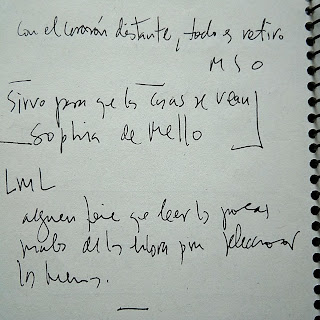 con el corazón distante, todo es retiro
M S O
Sirvo para que las cosas se vean
Sophia de Mello
LML
alguien tiene que leer los poemas
malos de la historia para seleccionar
los buenos.